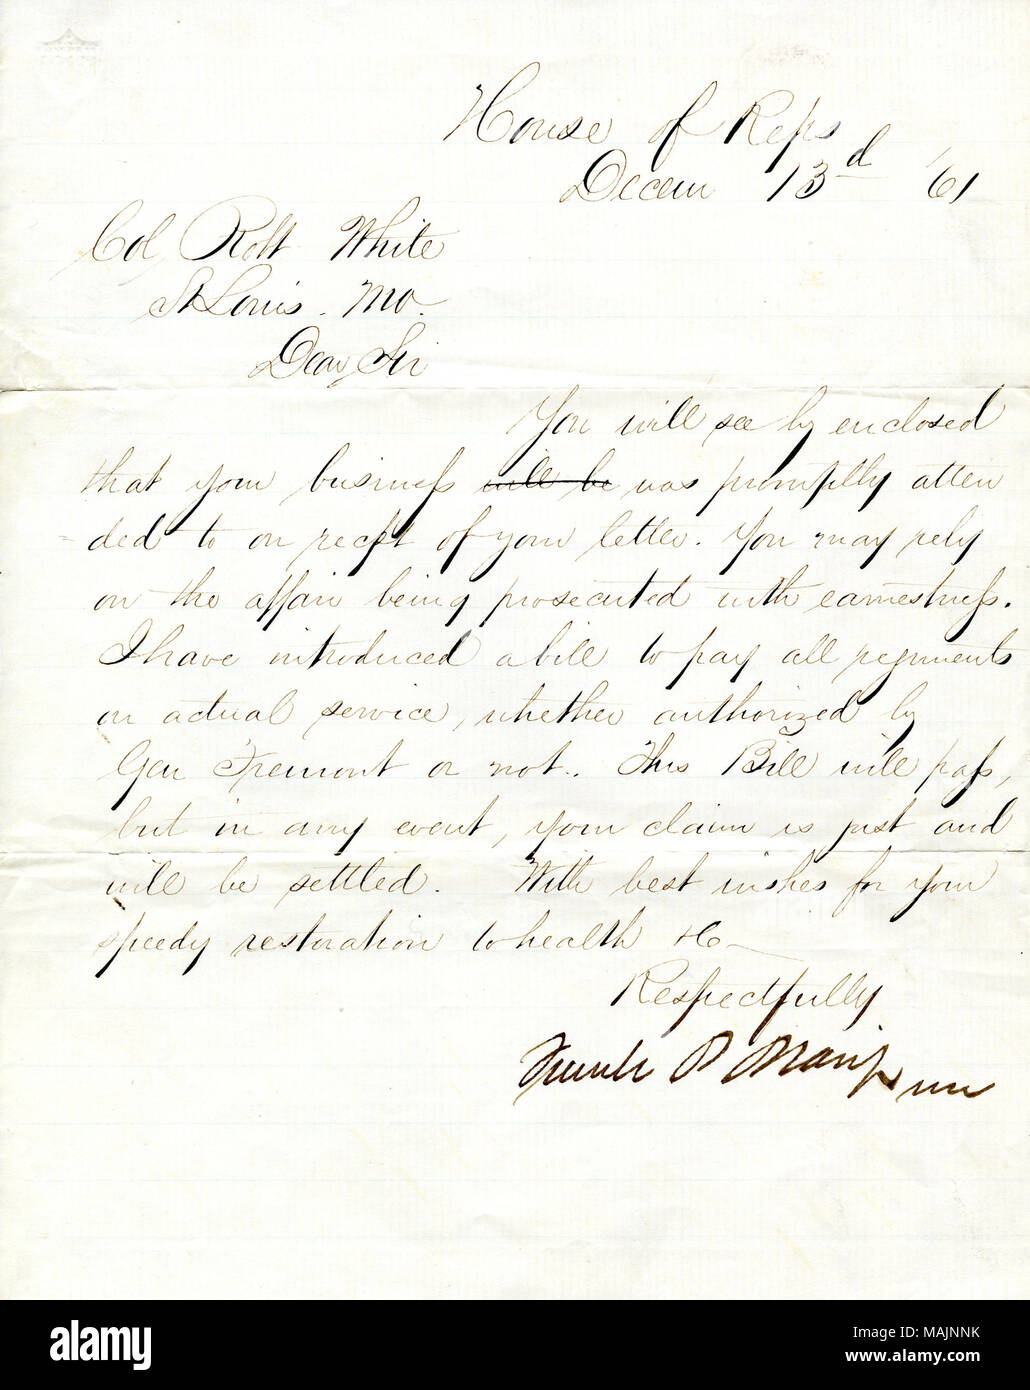 House of Reps
Decem 13d '61
Col Robt White
St Louis. Mo.
Dear Sir
You will see by enclosed
that your business will be was promptly atten
= ded to on recpt of your letter. You may rely
on the affair being prosecuted with earnestness.
I have introduced a bill to pay all regiments
on actual service, whether authorized by
Gen Fremont or not. This Bill will pass,
but in any event, your claim is just and
will be settled. With best wishes for your
speedy restoration to health &c
Respectfully
Frank P Blair Jr
a alamy stock photo
alamy
Image ID: MAJNNK
www.alamy.com